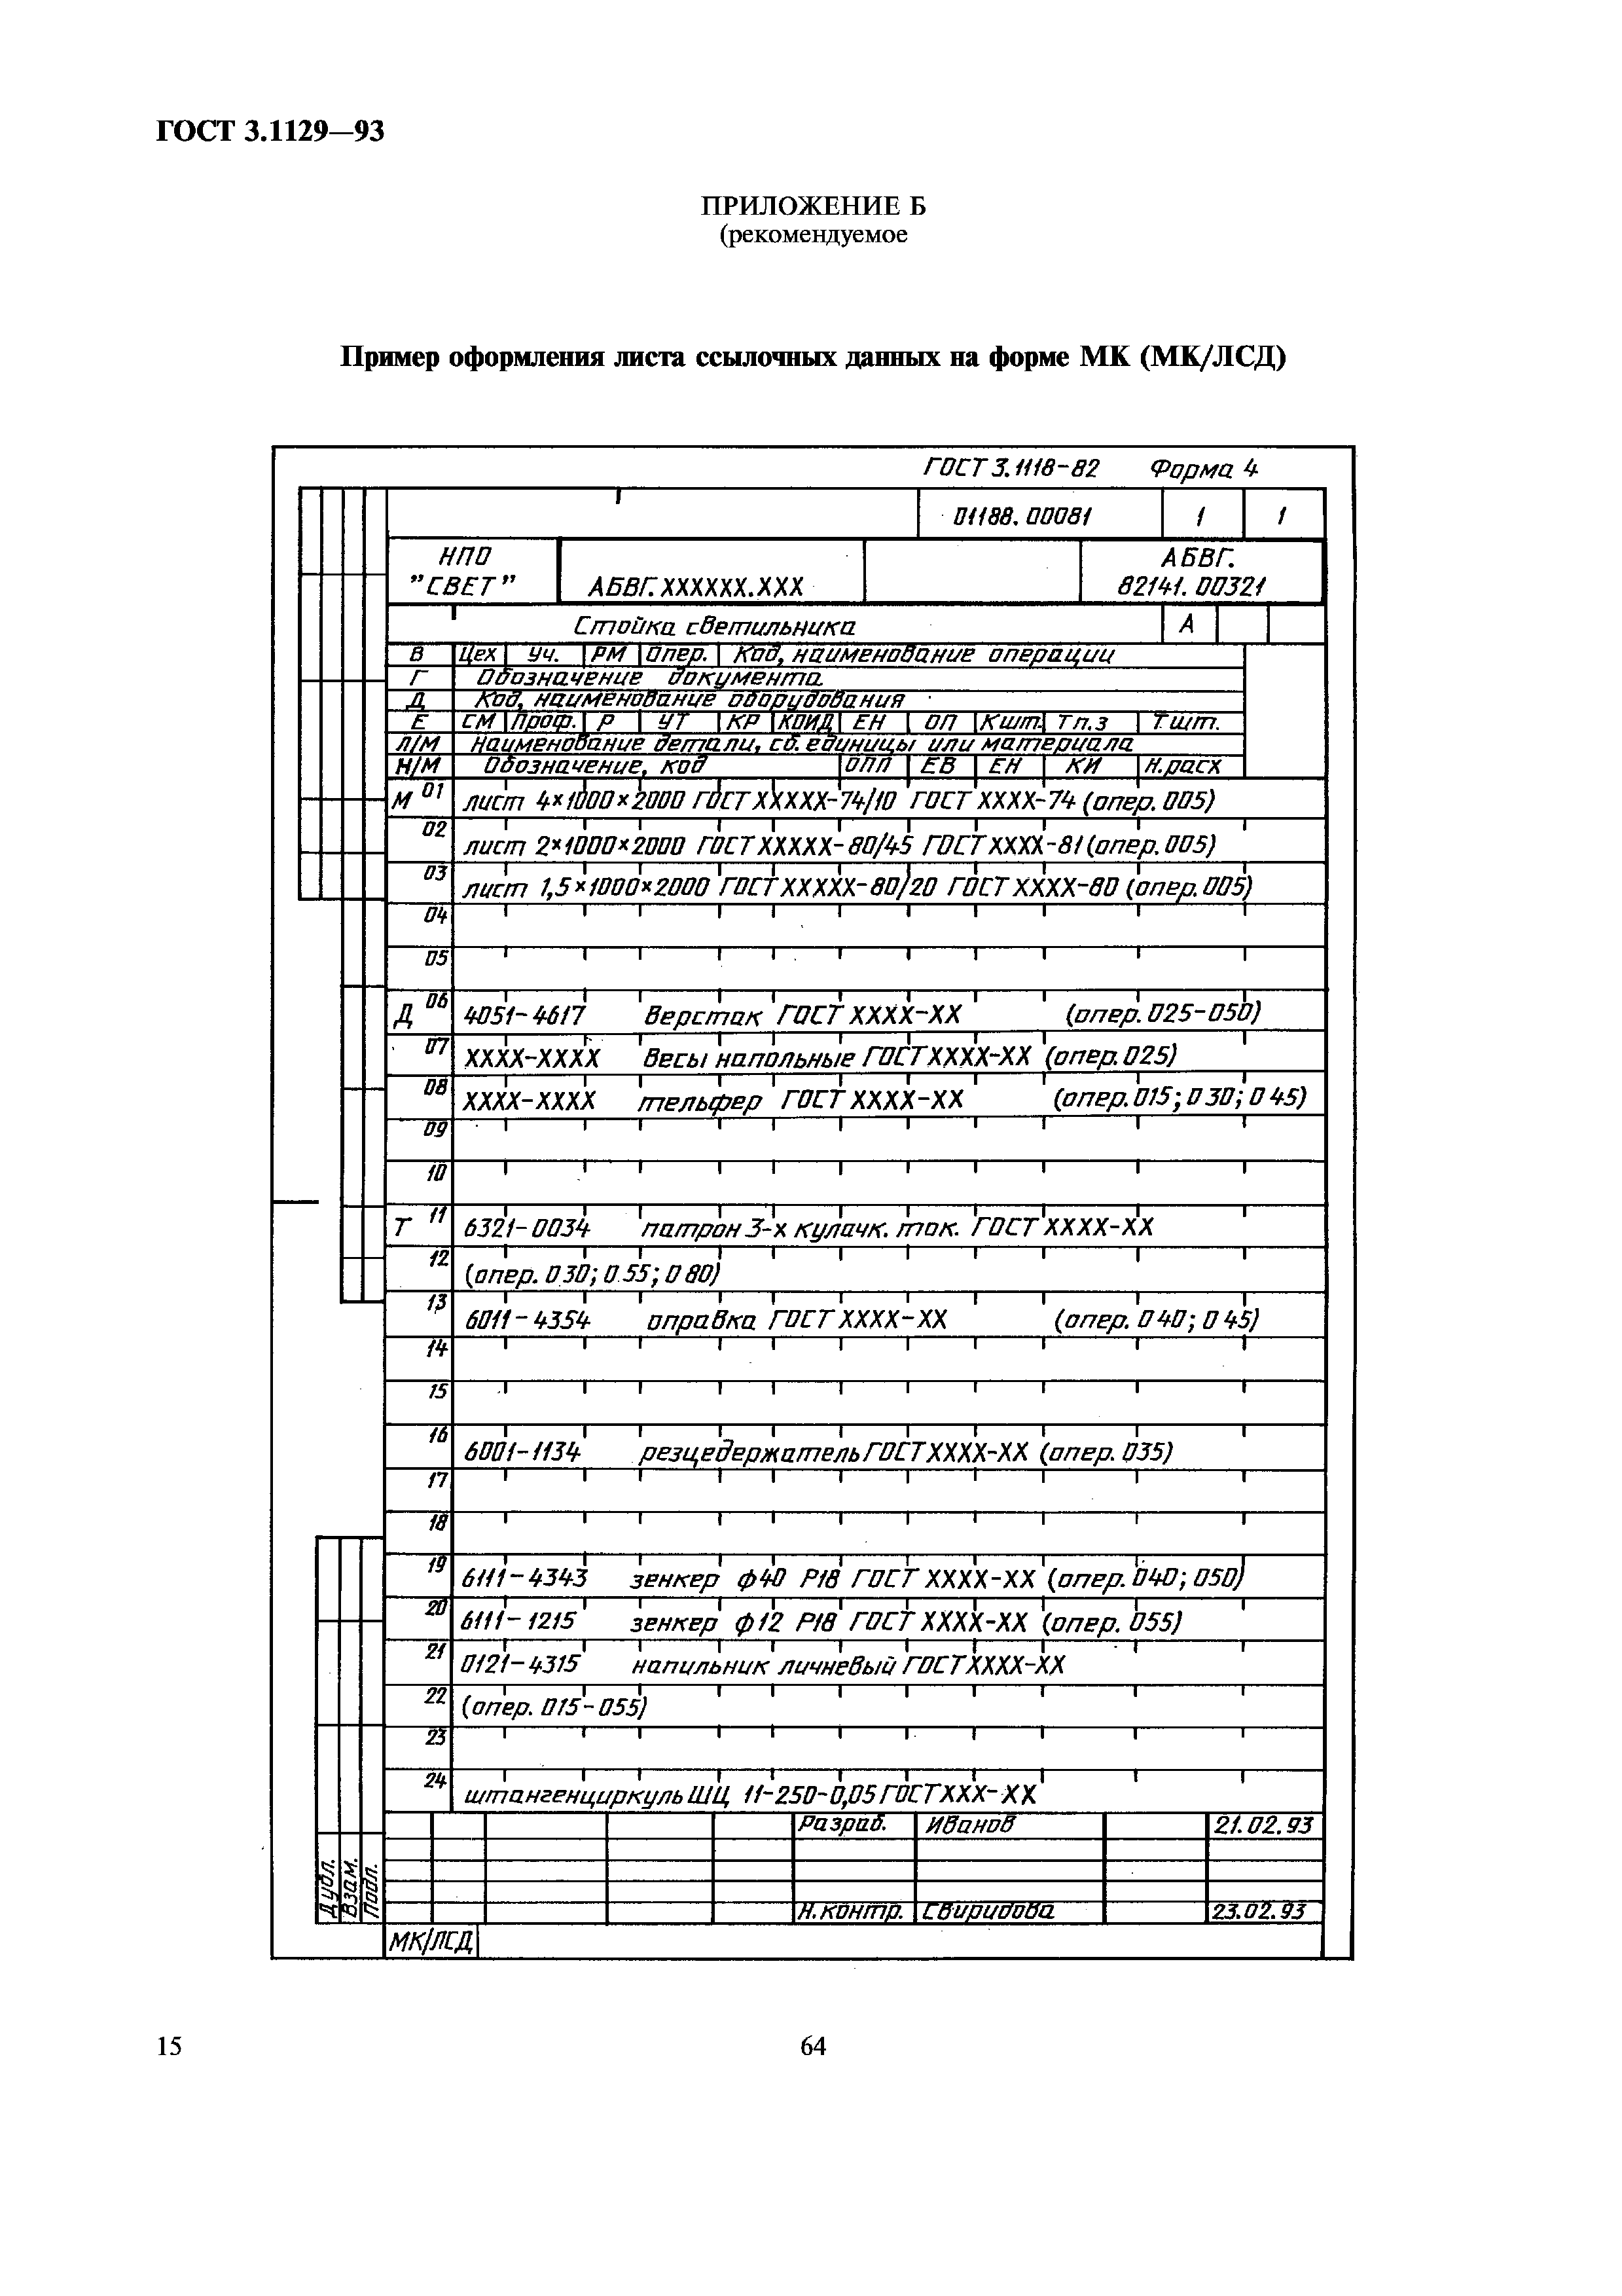 ГОСТ 3.1129—93
ПРИЛОЖЕНИЕ Б
(рекомендуемое
Пример оформления листа ссылочных данных на форме МК (МК/ЛСД)
ГОСТ 3.1118-82 Форма 4
01188.00081 1 1
НПО "СВЕТ" АБВГ.XXXXXX.XXX АБВГ. 82141.00321
Стойка светильника А
В Цех Уч. РМ Опер. Код, наименование операции
Г Обозначение документа
Д Код, наименование оборудования
Е СМ Проф. Р УТ КР КОИД ЕН ОП Кшт. Тп.з Тшт.
Л/М Наименование детали, сб. единицы или материала
Н/М Обозначение, код ОПП ЕВ ЕН КИ Н.расх
М 01 лист 4×1000×2000 ГОСТ XXXXX-74/10 ГОСТ XXXX-74 (опер. 005)
02 лист 2×1000×2000 ГОСТ XXXXX-80/45 ГОСТ XXXX-81 (опер. 005)
03 лист 1,5×1000×2000 ГОСТ XXXXX-80/20 ГОСТ XXXX-80 (опер. 005)
04
05
Д 06 4051-4617 Верстак ГОСТ XXXX-XX (опер. 025-050)
07 XXXX-XXXX Весы напольные ГОСТ XXXX-XX (опер. 025)
08 XXXX-XXXX тельфер ГОСТ XXXX-XX (опер. 015; 030; 045)
09
10
Т 11 6321-0034 патрон 3-х кулачк. ток. ГОСТ XXXX-XX
12 (опер. 030; 055; 080)
13 6011-4354 оправка ГОСТ XXXX-XX (опер. 040; 045)
14
15
16 6001-1134 резцедержатель ГОСТ XXXX-XX (опер. 035)
17
18
19 6111-4343 зенкер ф40 Р18 ГОСТ XXXX-XX (опер. 040; 050)
20 6111-1215 зенкер ф12 Р18 ГОСТ XXXX-XX (опер. 055)
21 0121-4315 напильник личневый ГОСТ XXXX-XX
22 (опер. 015-055)
23
24 штангенциркуль ШЦ 11-250-0,05 ГОСТ XXX-XX
Разраб. Иванов 21.02.93
Н.контр. Свиридова 23.02.93
Дубл.
Взам.
Подл.
МК/ЛСД
15 64